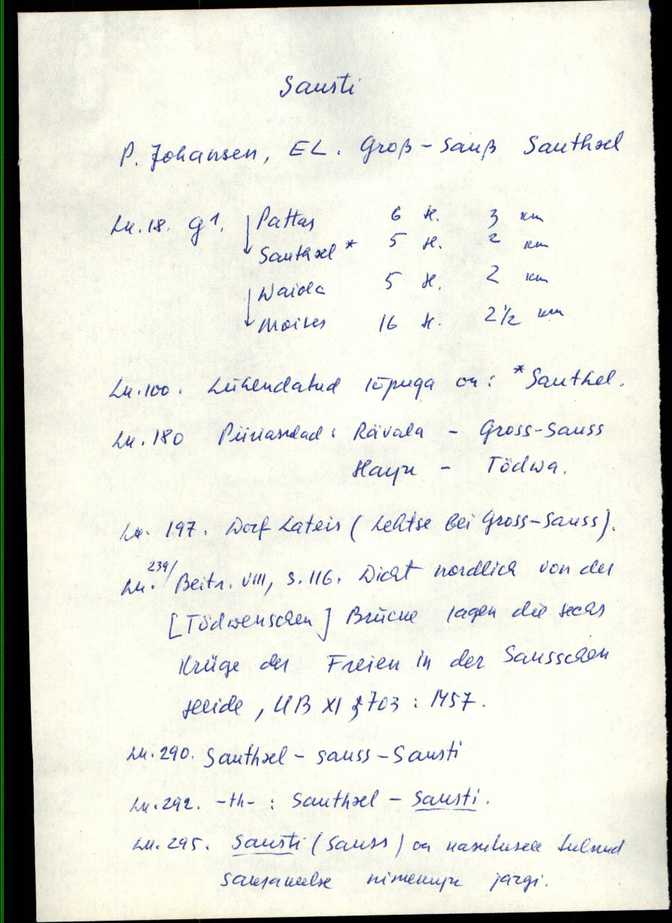 Sausti
P. Johansen, EL. Groß-Sauß Sauthæl
Lk. 18. g1. Pattas 6 H. 3 km
Sauthæl * 5 H. 2 km
Waida 5 H. 2 km
Moises 16 H. 2 1/2 km
Lk. 100. Lühendatud lõpuga on: *Sauthel.
Lk. 180 Piirialad: Rävala - Gross-Sauss
Harju - Tödwa.
Lk. 197. Dorf Lateis (Lehtse bei Gross-Sauss).
Lk. 239/ Beitr. VIII, S. 116. Dicht nördlich von der
[Tödwenschen] Brücke lagen die sechs
Krüge der Freien in der Sausschen
Heide, UB XI 703: 1457.
Lk. 290. Sauthæl - Sauss - Sausti
Lk. 292. -th- : Sauthæl - Sausti.
Lk. 295. Sausti (Sauss) on tulnud
järgi.